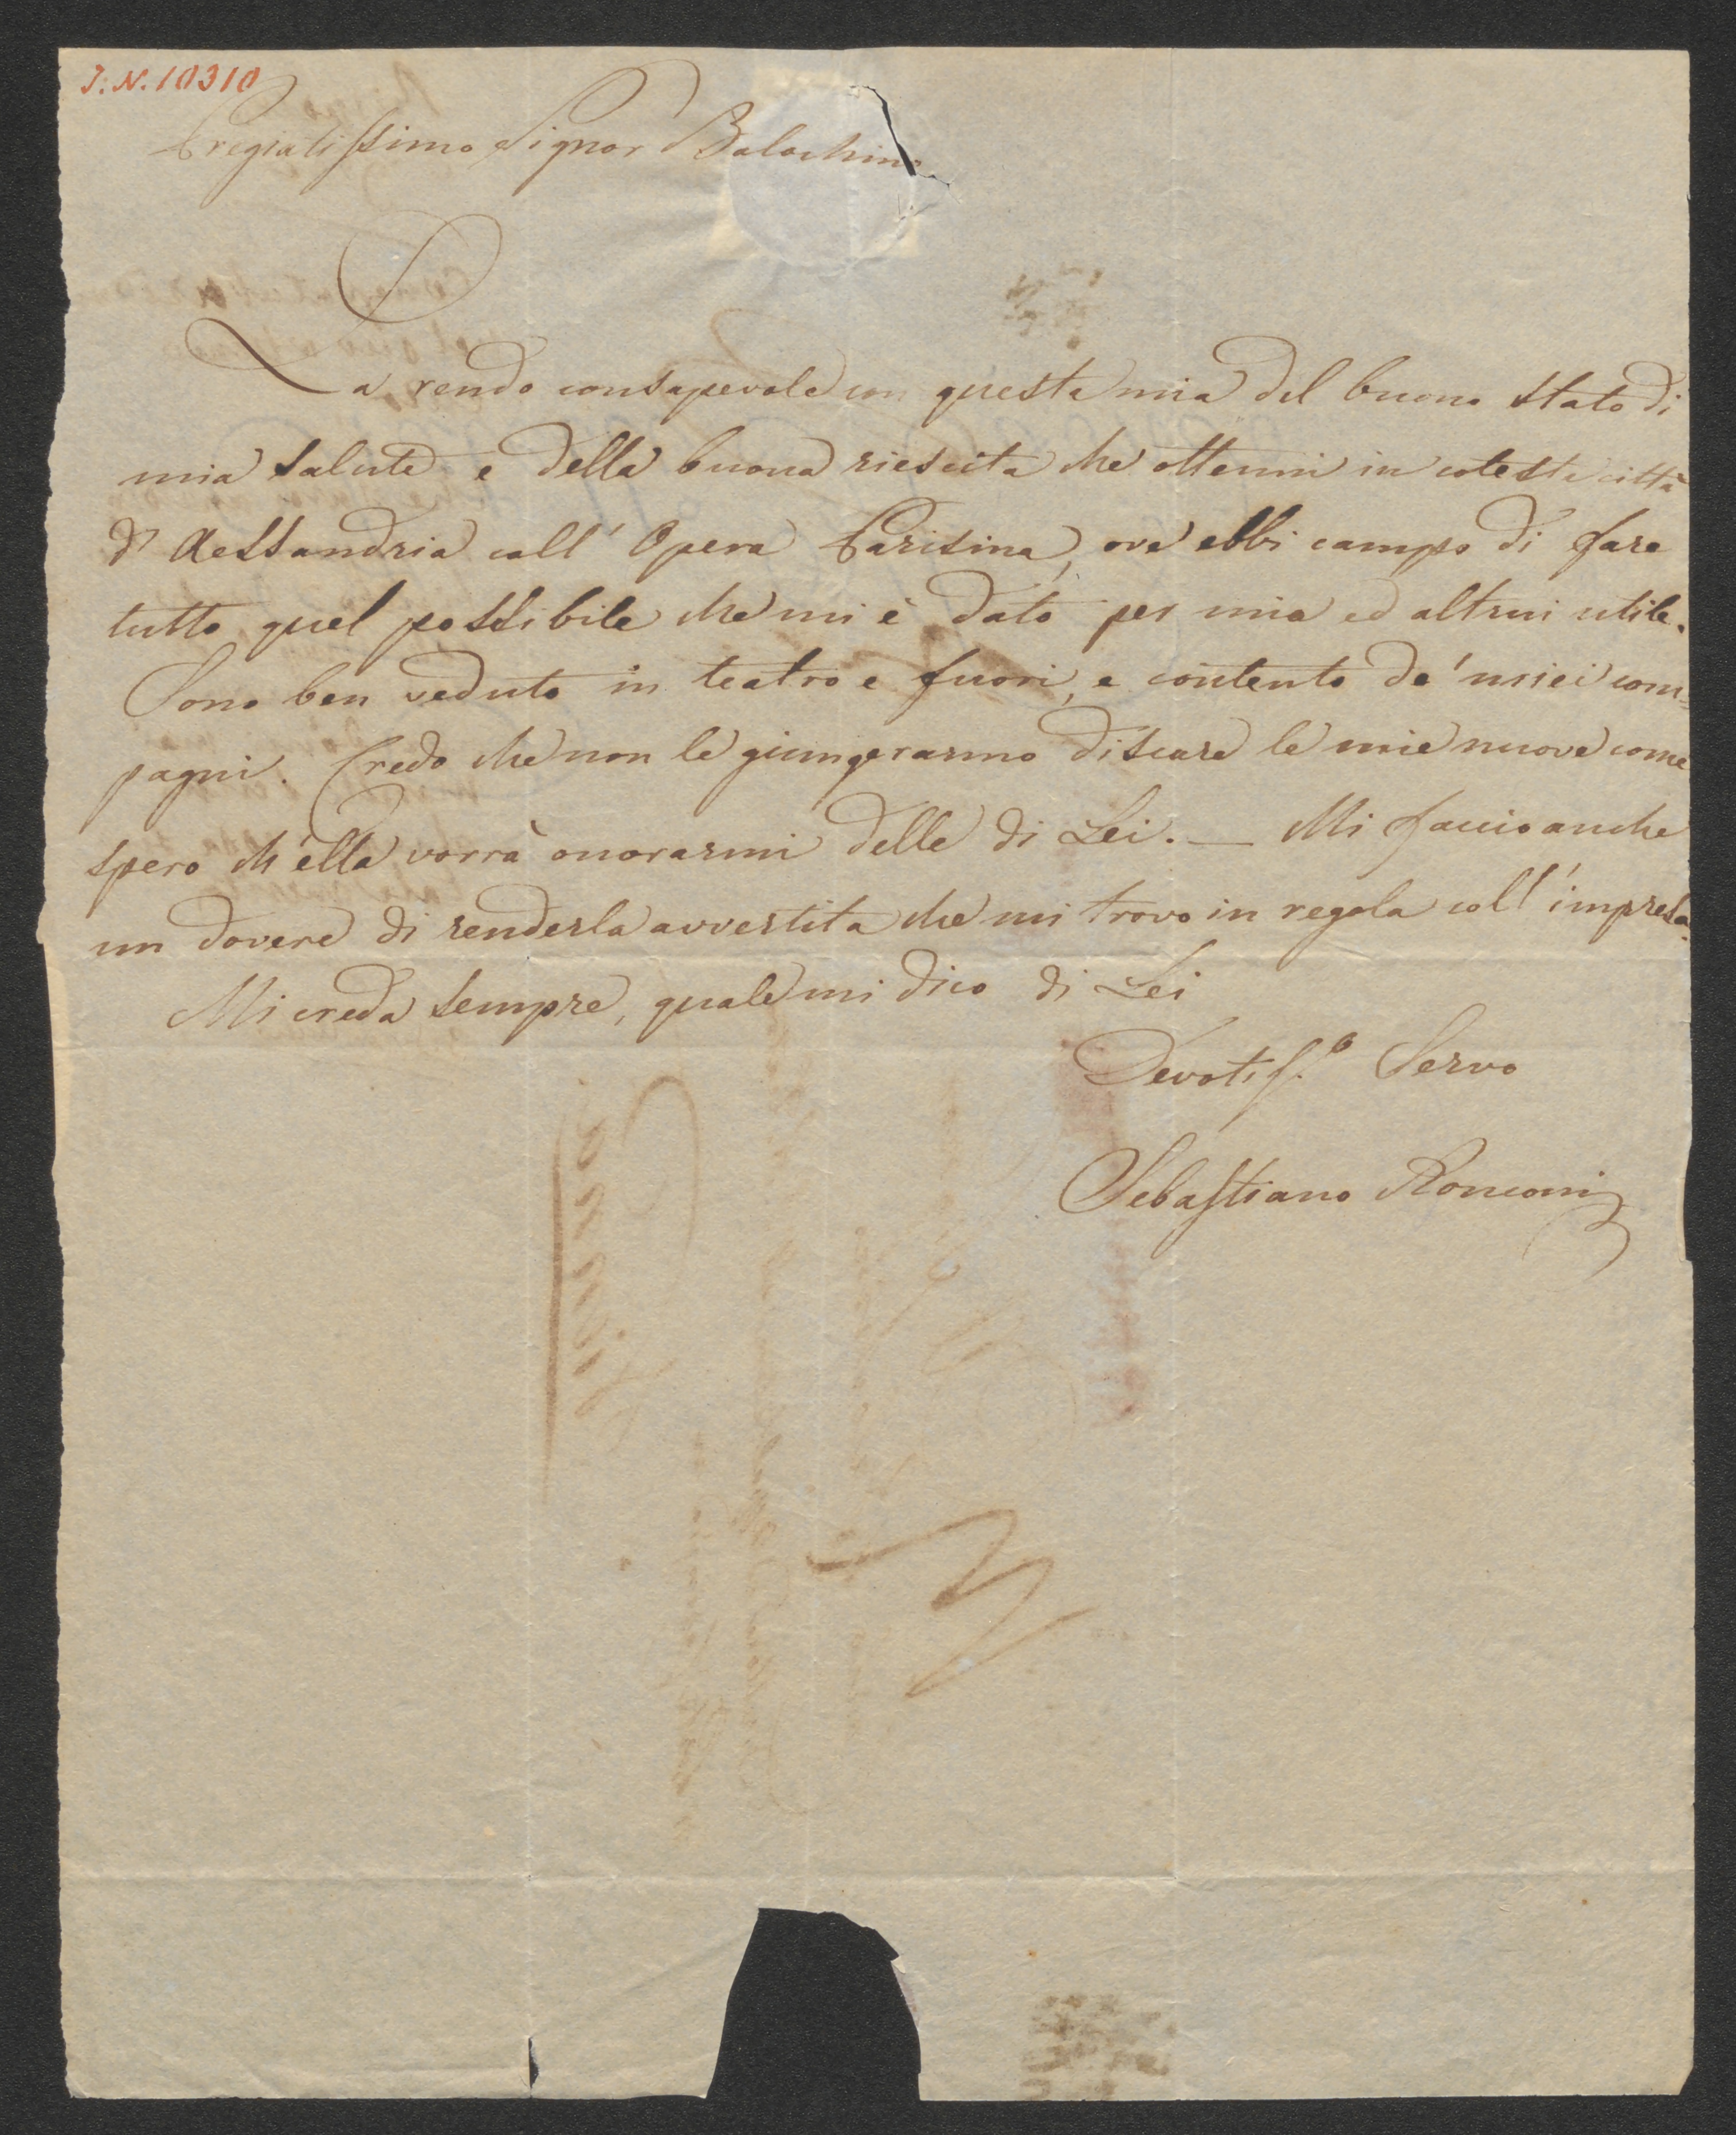 J. N. 10310
Pregiatissimo Signor Balochino
La rendo consapevole con questa mia del buono stato di
mia salute e della buona riescita che ottenni in cotesta città
d'Aessandria coll' Opera Parisina, ove ebbi campo di fare
tutto quel possibile che mi è dato per mio ed altrui utile.
Sono ben veduto in teatro e fuori, e contento de' miei com=
pagni. Credo che non le giungeranno discare le mie nuove come
spero ch'ella vorrà onorarmi delle di Lei. — Mi faccio anche
un dovere di renderla avvertita che mi trovo in regola coll' impresa.
Mi creda sempre, quale mi dico di Lei
Devotiss.o Servo
Sebastiano Ronconi